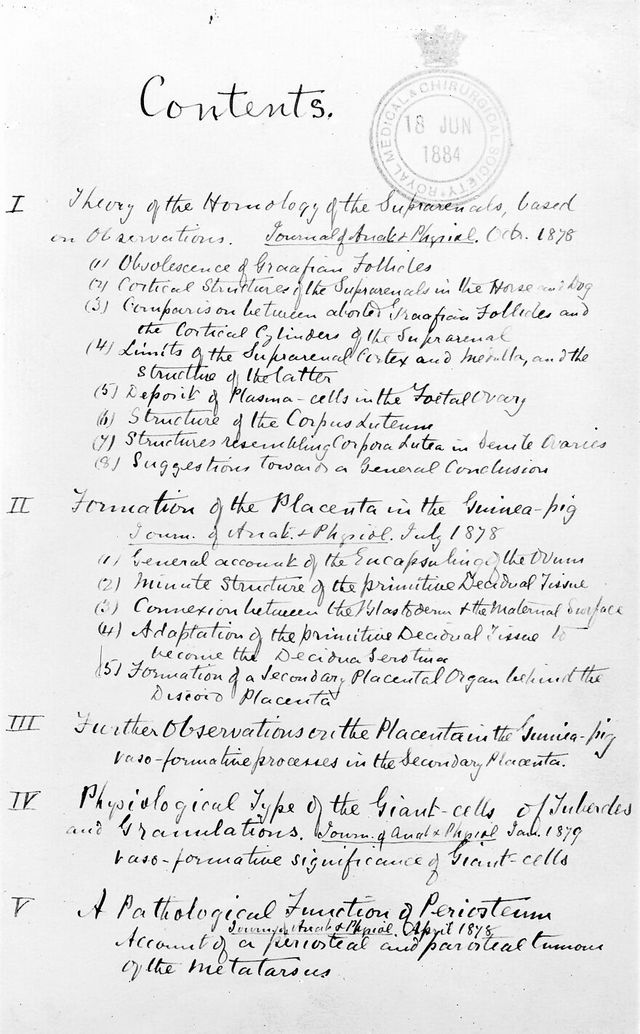 Contents.
ROYAL MEDICAL & CHIRURGICAL SOCIETY
18 JUN
1884
I Theory of the Homology of the Suprarenals, based
on Observations. Journal of Anat. & Physiol. Octr. 1878
(1) Obsolescence of Graafian Follicles
(2) Cortical Structures of the Suprarenals in the Horse and Dog
(3) Comparison between aborted Graafian Follicles and
the Cortical Cylinders of the Suprarenal
(4) Limits of the Suprarenal Cortex and Medulla, and the
Structure of the latter
(5) Deposit of Plasma-cells in the Foetal Ovary
(6) Structure of the Corpus Luteum
(7) Structures resembling Corpora Lutea in Senile Ovaries
(8) Suggestions towards a General Conclusion
II Formation of the Placenta in the Guinea-pig
Journ. of Anat. & Physiol. July 1878
(1) General account of the Encapsuling of the Ovum
(2) Minute Structure of the primitive Decidual Tissue
(3) Connexion between the Blastoderm & the Maternal Surface
(4) Adaptation of the primitive Decidual Tissue to
become the Decidua Serotina
(5) Formation of a Secondary Placental Organ behind the
Discoid Placenta
III Further Observations on the Placenta in the Guinea-pig
vaso-formative processes in the Secondary Placenta.
IV Physiological Type of the Giant-cells of Tubercles
and Granulations. Journ. of Anat. & Physiol Jan. 1879
vaso-formative significance of Giant-cells
V A Pathological Function of Periosteum
Journ. of Anat. & Physiol. April 1878
Account of a periosteal and parosteal tumour
of the Metatarsus